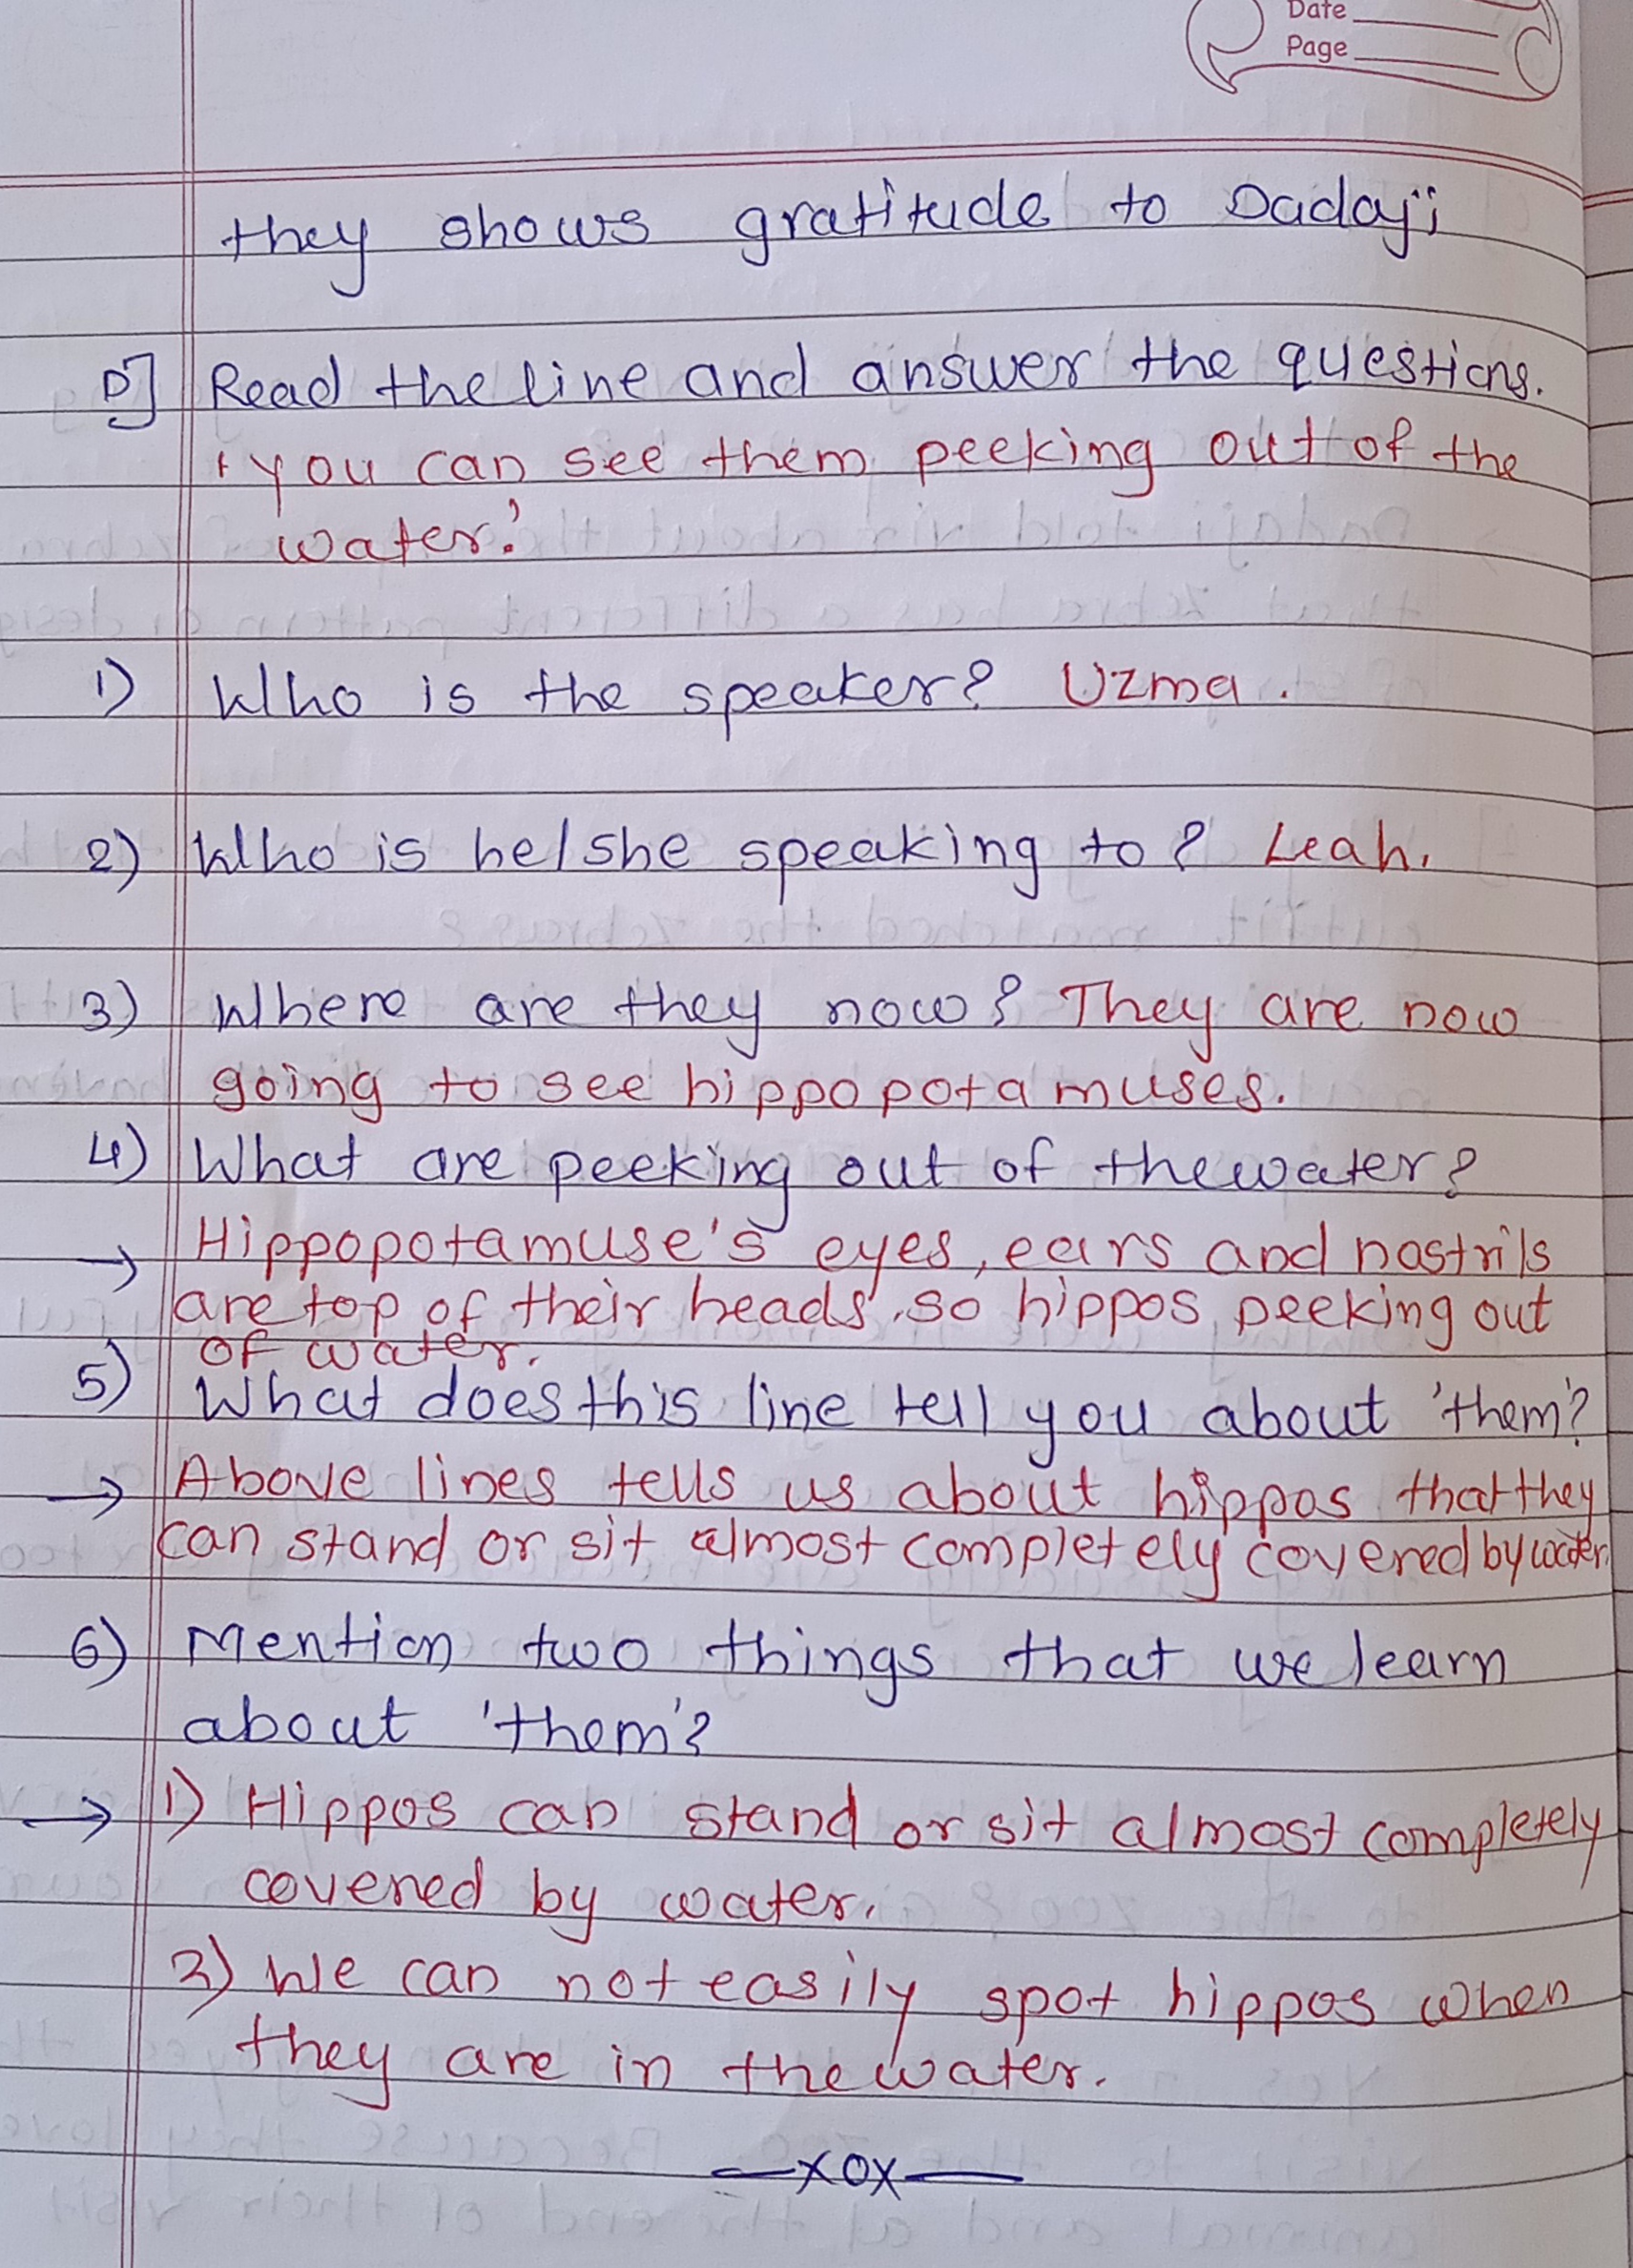 Date
Page
they shows gratitude to Dadaji
D] Read the line and answer the questions.
'you can see them peeking out of the
water.'
1) Who is the speaker? Uzma.
2) Who is he/she speaking to? Leah.
3) Where are they now? They are now
going to see hippopotamuses.
4) What are peeking out of the water?
→ Hippopotamuse's eyes, ears and nostrils
are top of their heads, so hippos peeking out
of water.
5) What does this line tell you about 'them'?
→ Above lines tells us about hippos that they
can stand or sit almost completely covered by water.
6) Mention two things that we learn
about 'them'?
→ 1) Hippos can stand or sit almost completely
covered by water.
2) We can not easily spot hippos when
they are in the water.
—xox—